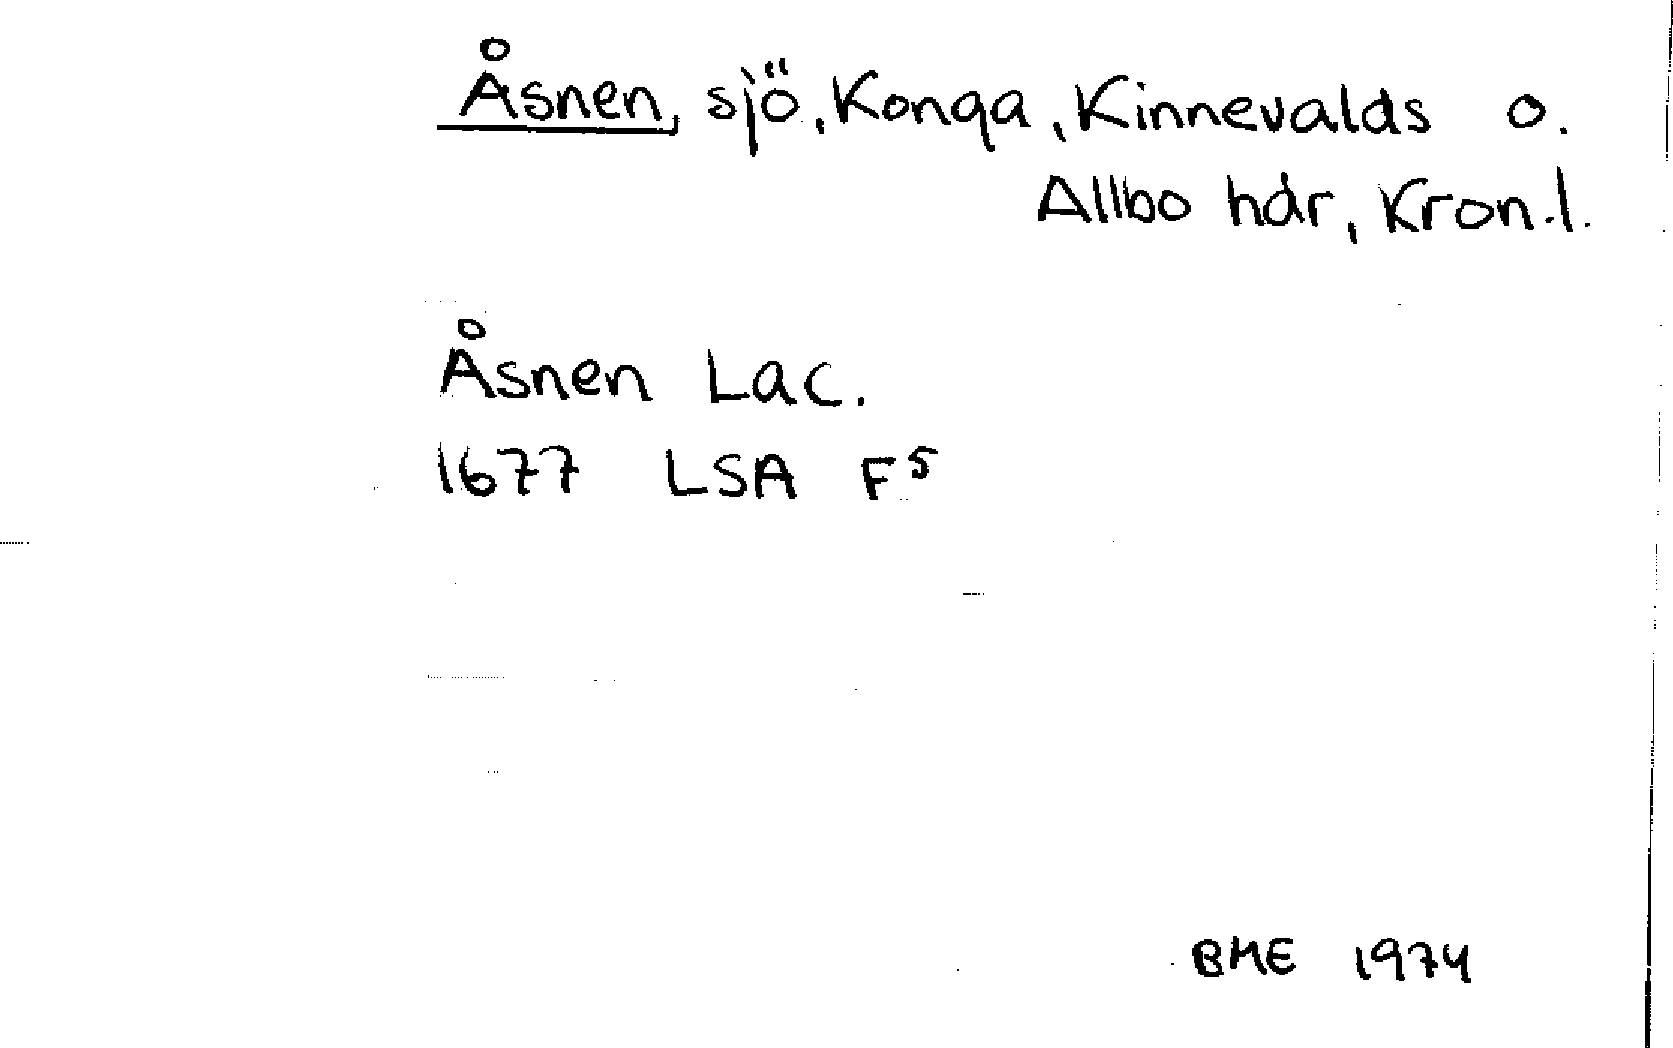 Åsnen, sjö, Konga, Kinnevalds o.
Allbo hdr, Kron.l.
Åsnen Lac.
1677 LSA F⁵
BME 1974